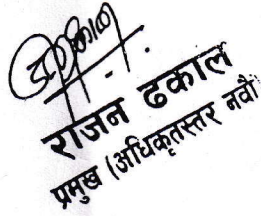 राजन ढकाल
प्रमुख (अधिकृतस्तर नवौं